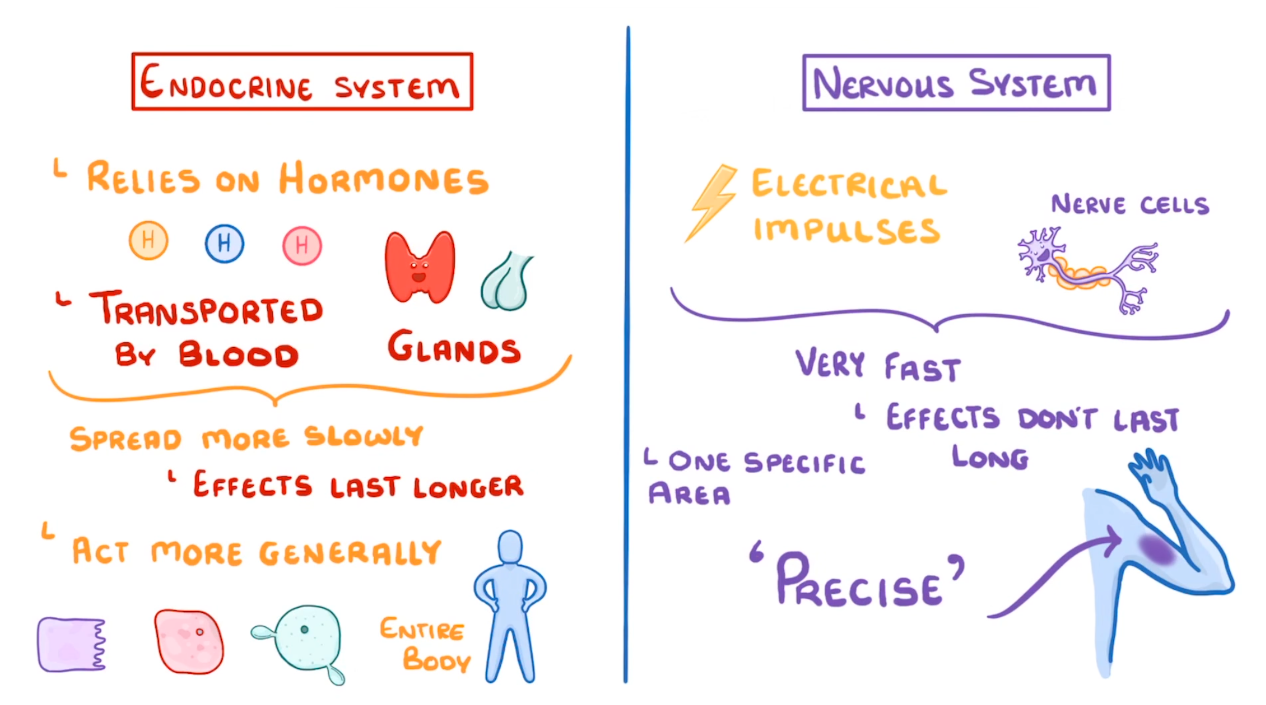 ENDOCRINE SYSTEM
RELIES ON HORMONES
H H H
TRANSPORTED
BY BLOOD
GLANDS
SPREAD MORE SLOWLY
EFFECTS LAST LONGER
ACT MORE GENERALLY
ENTIRE
BODY
NERVOUS SYSTEM
ELECTRICAL
IMPULSES
NERVE CELLS
VERY FAST
EFFECTS DON'T LAST
LONG
ONE SPECIFIC
AREA
'PRECISE'